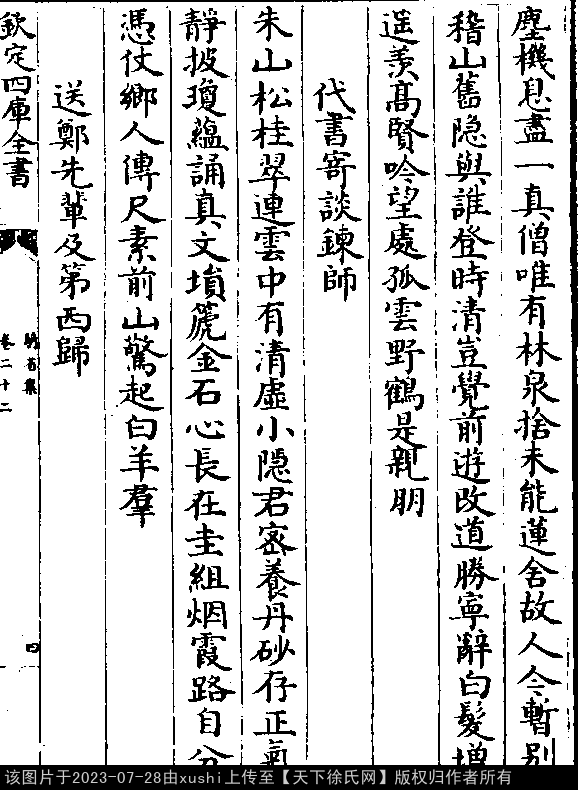 塵機息盡一真僧唯有林泉捨未能蓮舍故人今暫别
稽山舊隐與誰登時清豈覺前遊改道勝寧辭白髮增
遥羡髙賢吟望處孤雲野鶴是親朋
代書寄談鍊師
朱山松桂翠連雲中有清虚小隠君宻養丹砂存正氣
靜披瓊藴誦真文塤箎金石心長在圭組烟霞路自分
憑仗鄉人傳尺素前山驚起白羊羣
送鄭先輩及第西歸
欽定四庫全書
騎省集
卷二十二
四
该图片于2023-07-28由xushi上传至【天下徐氏网】版权归作者所有